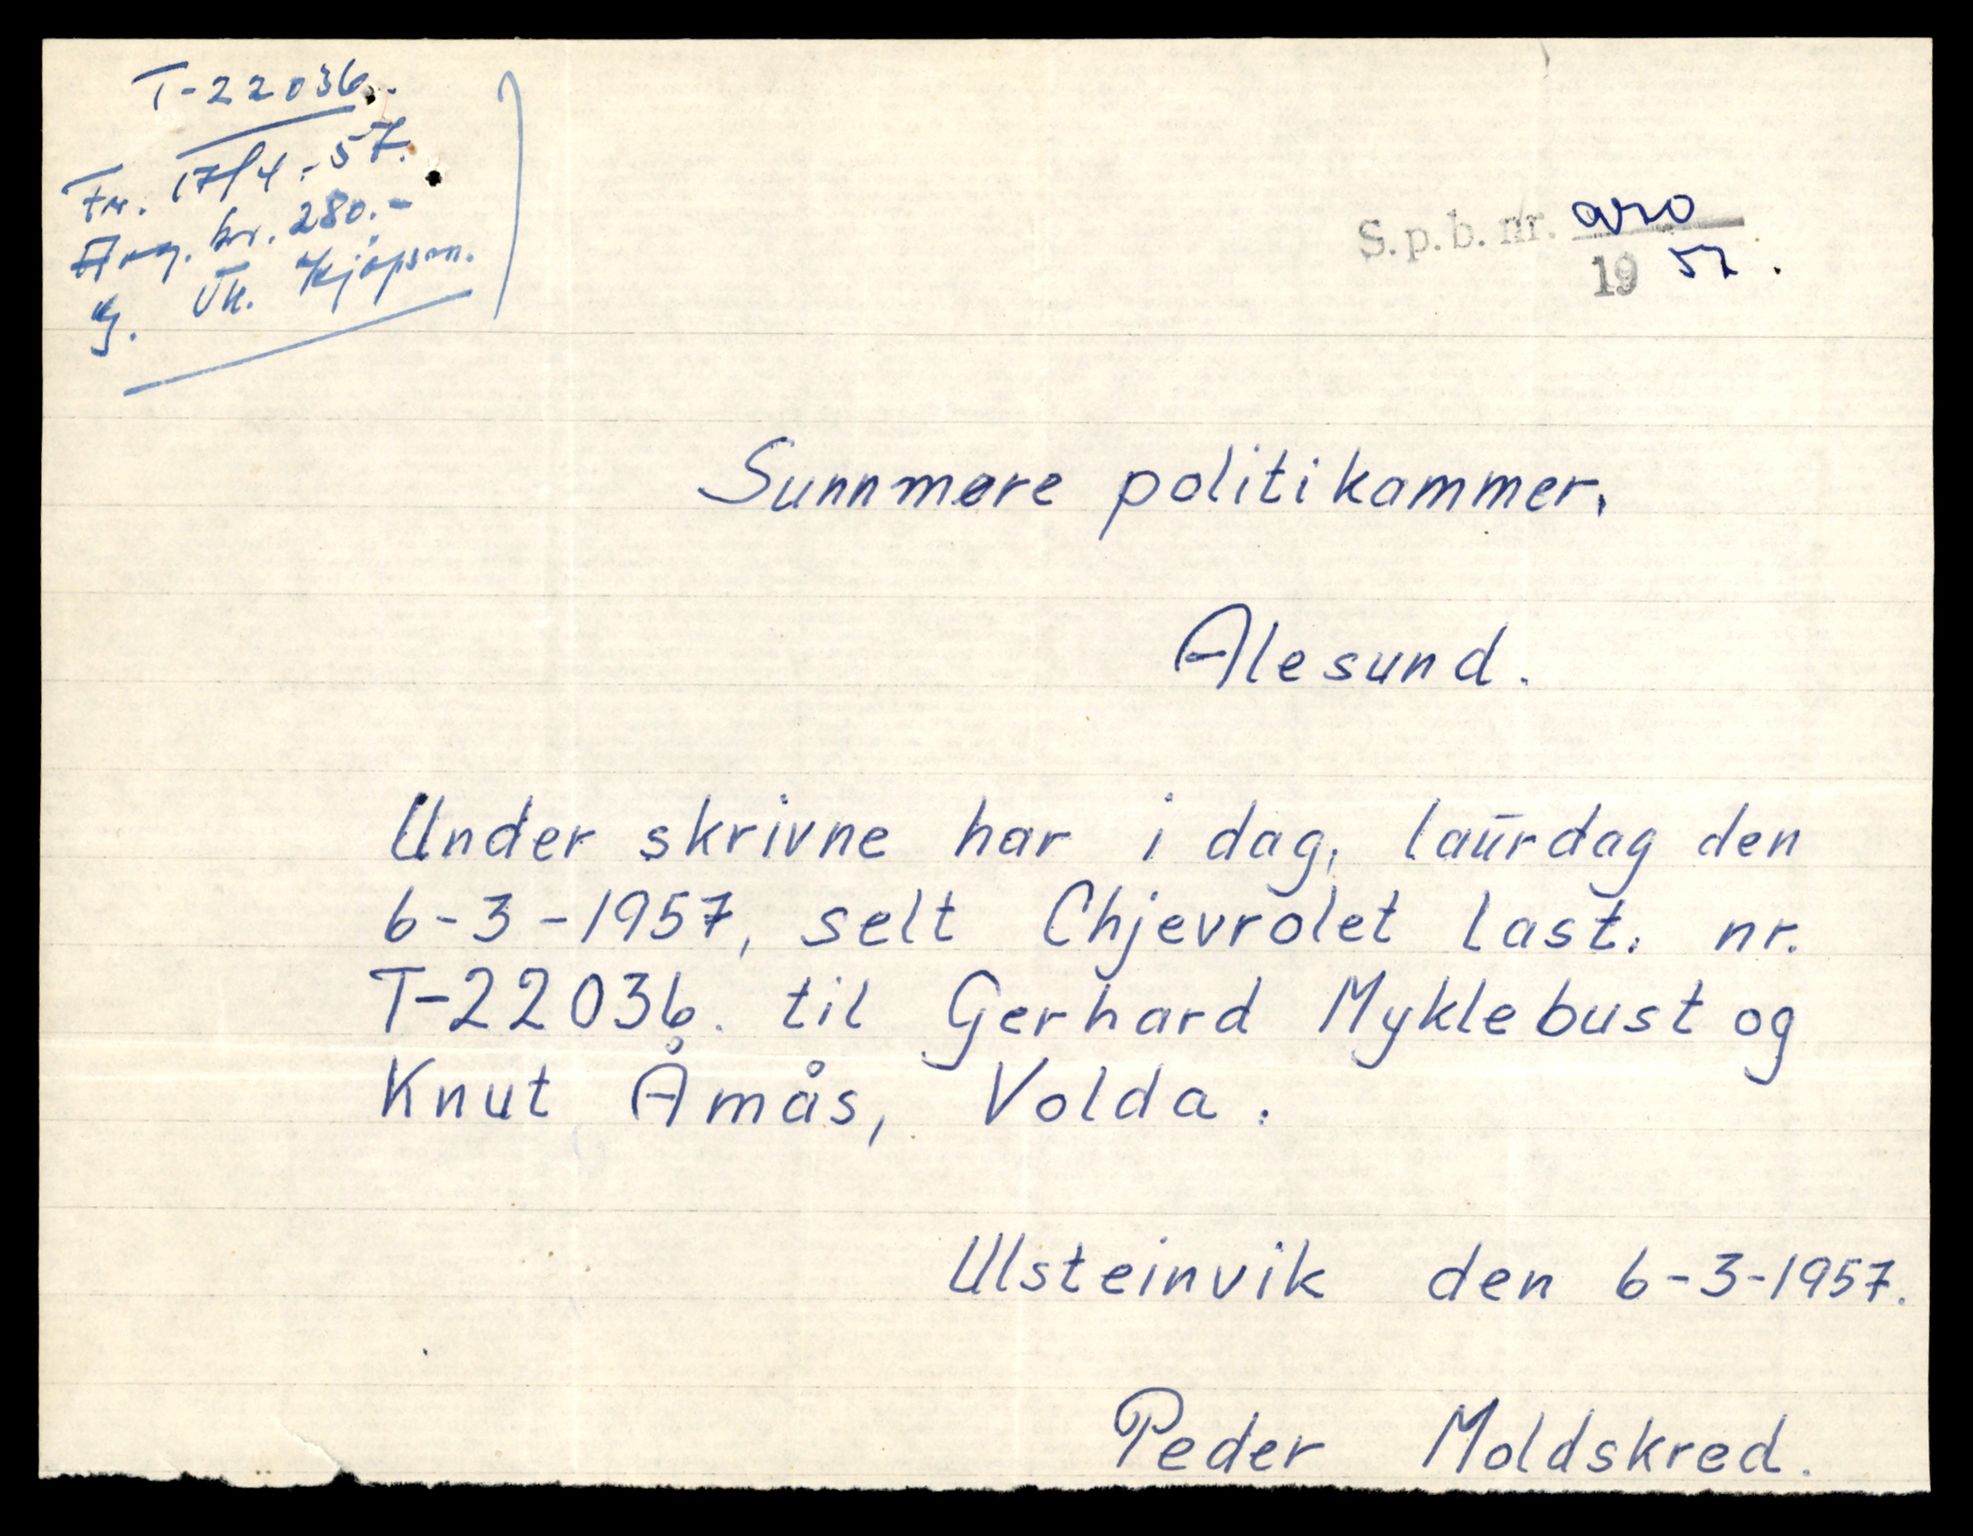 T-22036.
Fr. 17/4-57.
kr. 280.-
S.p.b. nr.
19 57.
Sunnmøre politikammer.
Alesund.
Under skrivne har i dag, laurdag den
6-3-1957, selt Chjevrolet last. nr.
T-22036. til Gerhard Myklebust og
Knut Åmås, Volda.
Ulsteinvik den 6-3-1957.
Peder Moldskred.